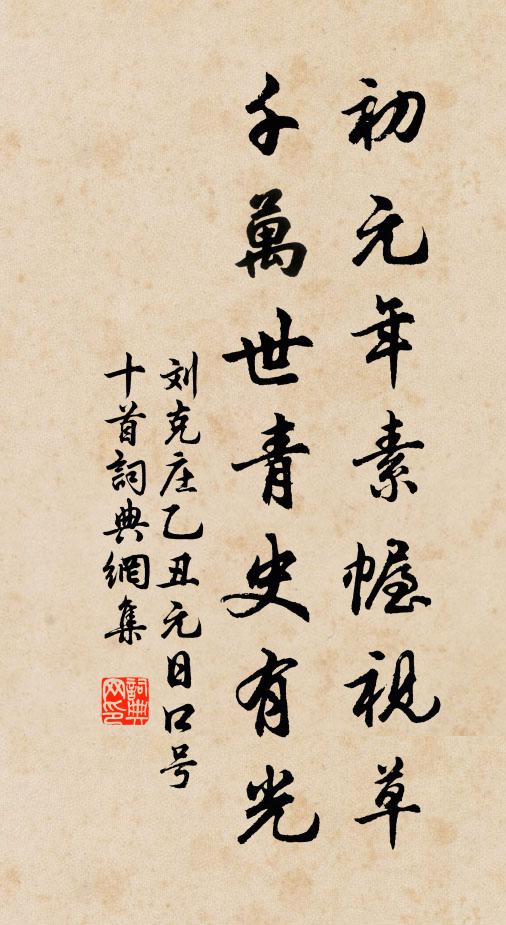 初元年素幄視草
千萬世青史有光
刘克庄乙丑元日口号
十首詞典網集
詞典
网印